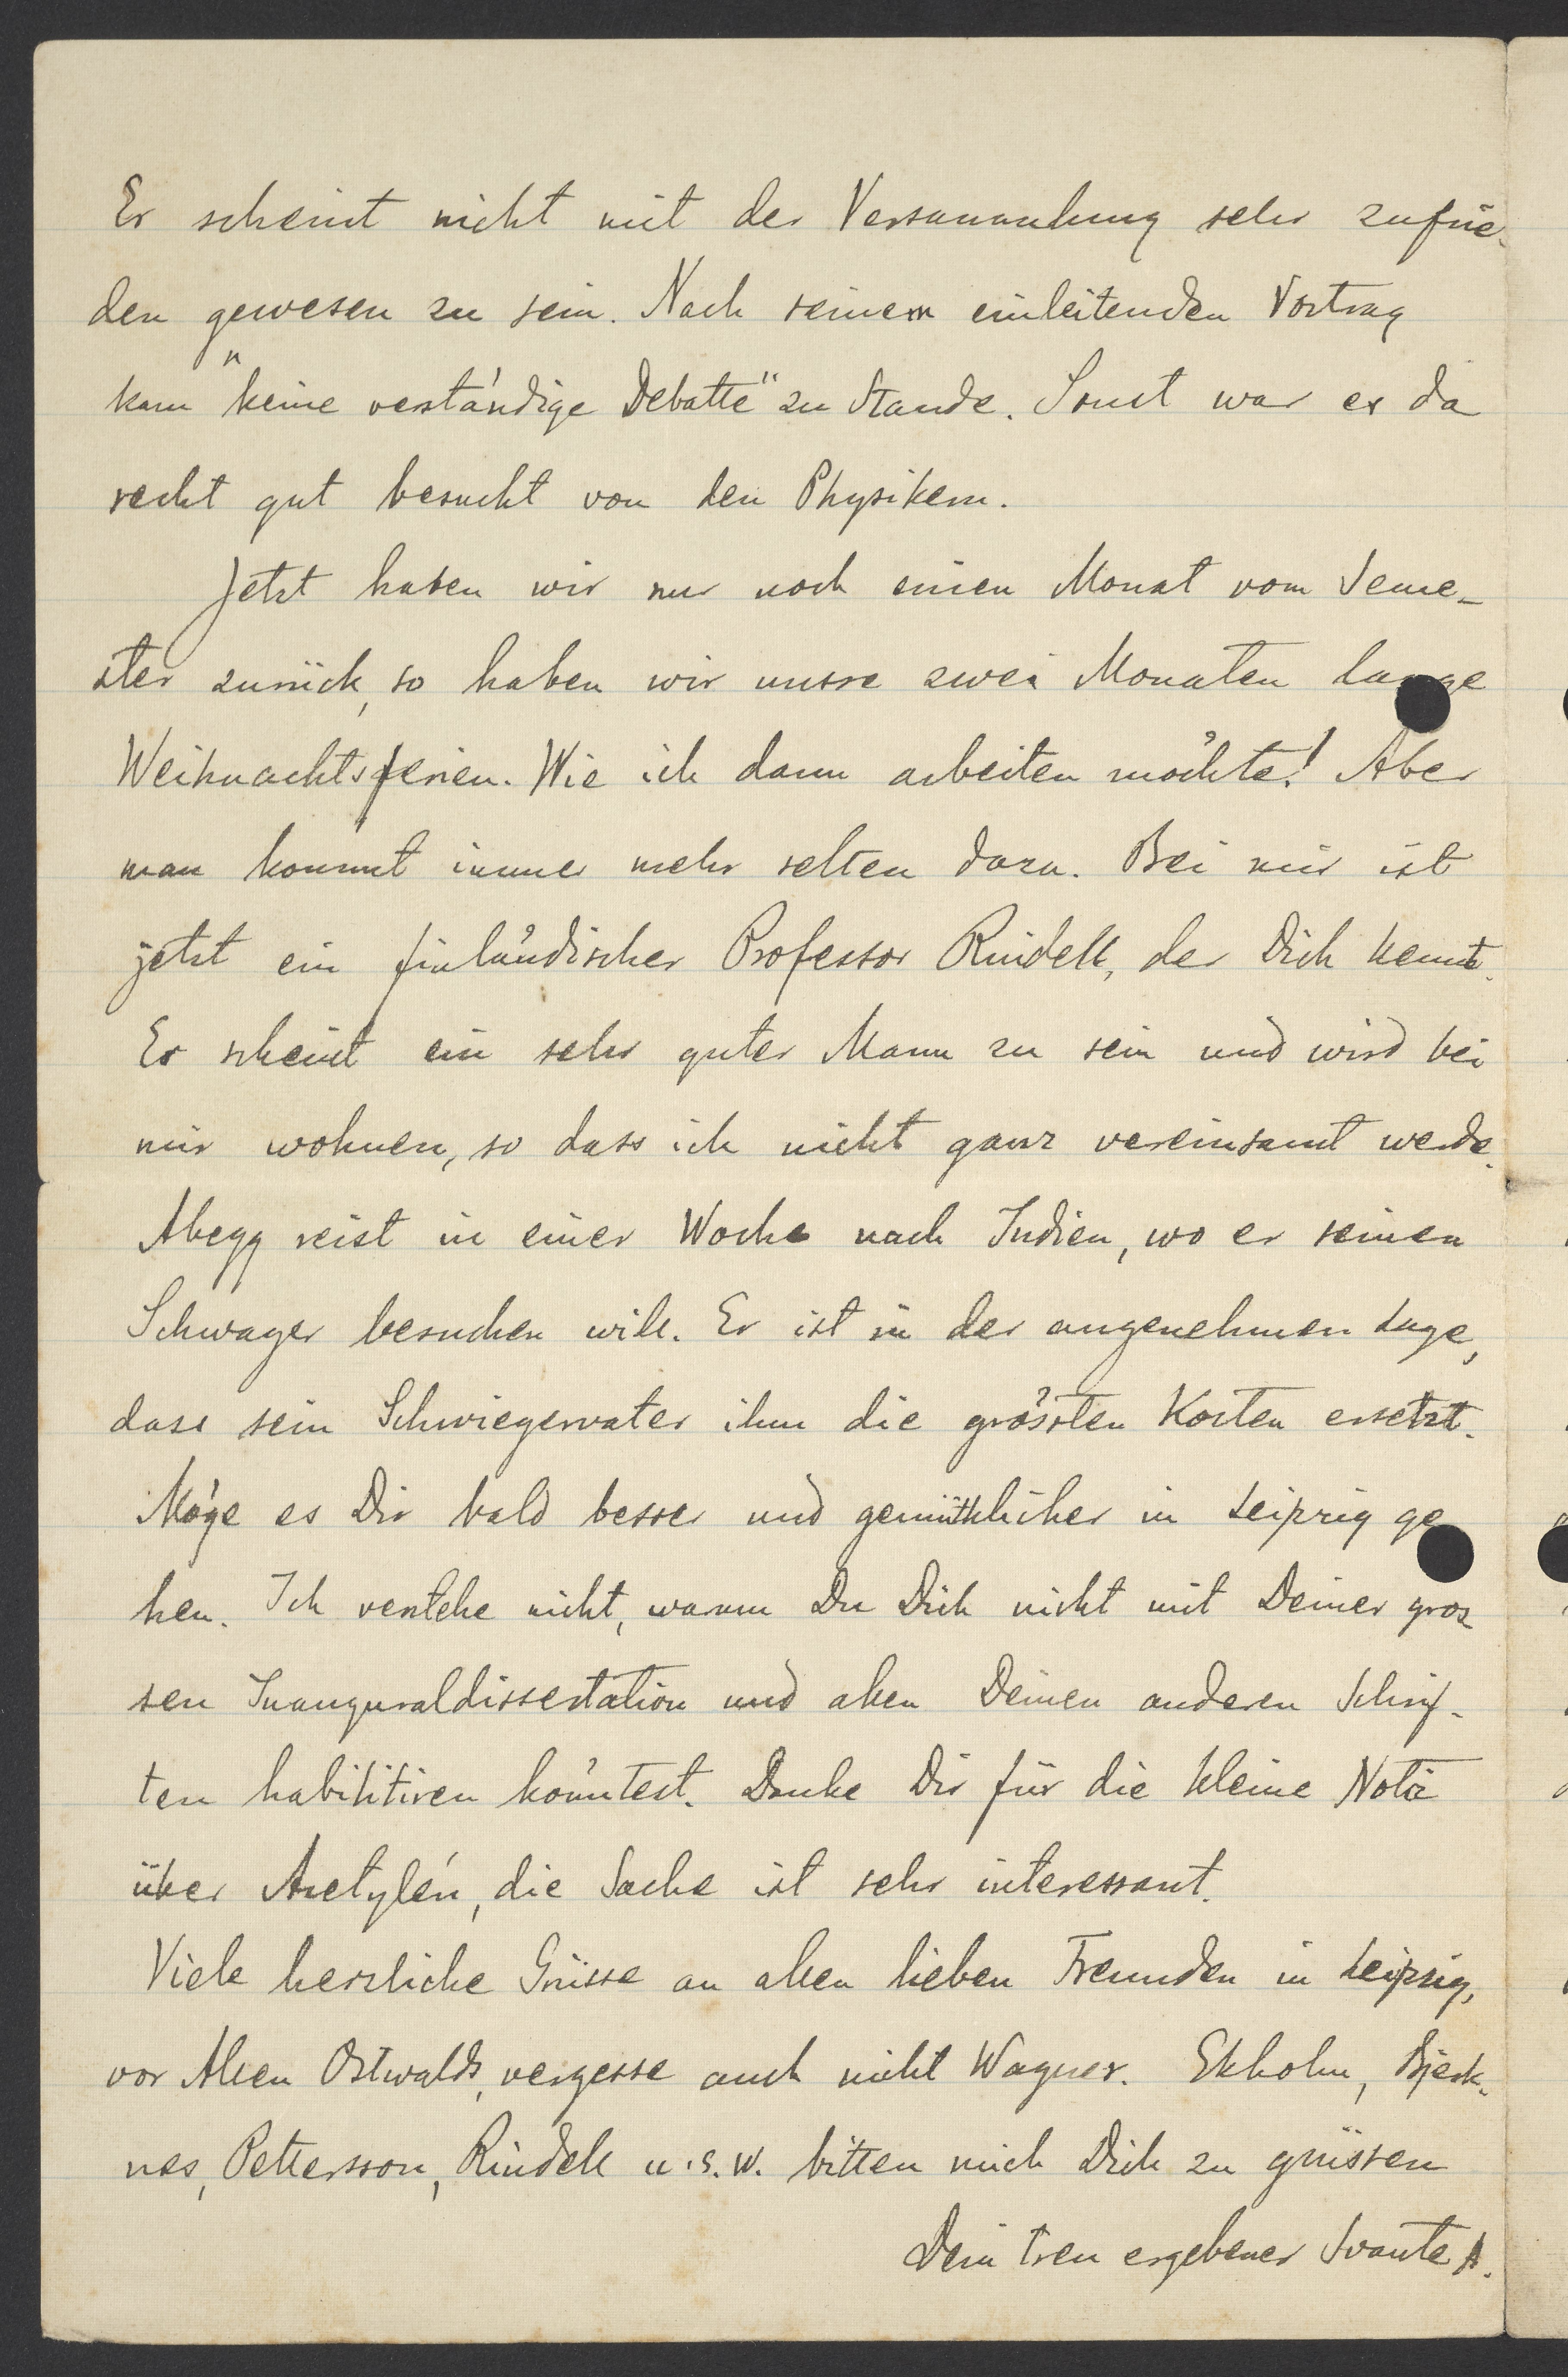 Er scheint nicht mit der Versammlung sehr zufrie-
den gewesen zu sein. Nach seinem einleitenden Vortrag
kam "keine verständige Debatte" zu Stande. Sonst war es da
recht gut besucht von den Physikern.
Jetzt haben wir nur noch einen Monat vom Seme-
ster zurück, so haben wir unsre zwei Monaten lange
Weihnachtsferien. Wie ich dann arbeiten möchte! Aber
man kommt immer mehr selten dazu. Bei mir ist
jetzt ein finländischer Professor Rindell, der Dich kennt.
Er scheint ein sehr guter Mann zu sein und wird bei
mir wohnen, so dass ich nicht ganz vereinsamt werde.
Abegg reist in einer Woche nach Indien, wo er seinen
Schwager besuchen will. Er ist in der angenehmen Lage,
dass sein Schwiegervater ihm die grössten Kosten ersetzt.
Möge es Dir bald besser und gemüthlicher in Leipzig ge
hen. Ich verstehe nicht, warum Du Dich nicht mit Deiner gros
sen Inauguraldissertation und allen Deinen anderen Schrif-
ten habilitiren könntest. Danke Dir für die kleine Notiz
über Acetylén, die Sache ist sehr interessant.
Viele herzliche Grüsse an allen lieben Freunden in Leipzig,
vor Allen Ostwalds, vergesse auch nicht Wagner. Ekholm, Bjerk-
nes, Pettersson, Rindell u.s.w. bitten mich Dich zu grüssen
Dein treu ergebener Svante A.